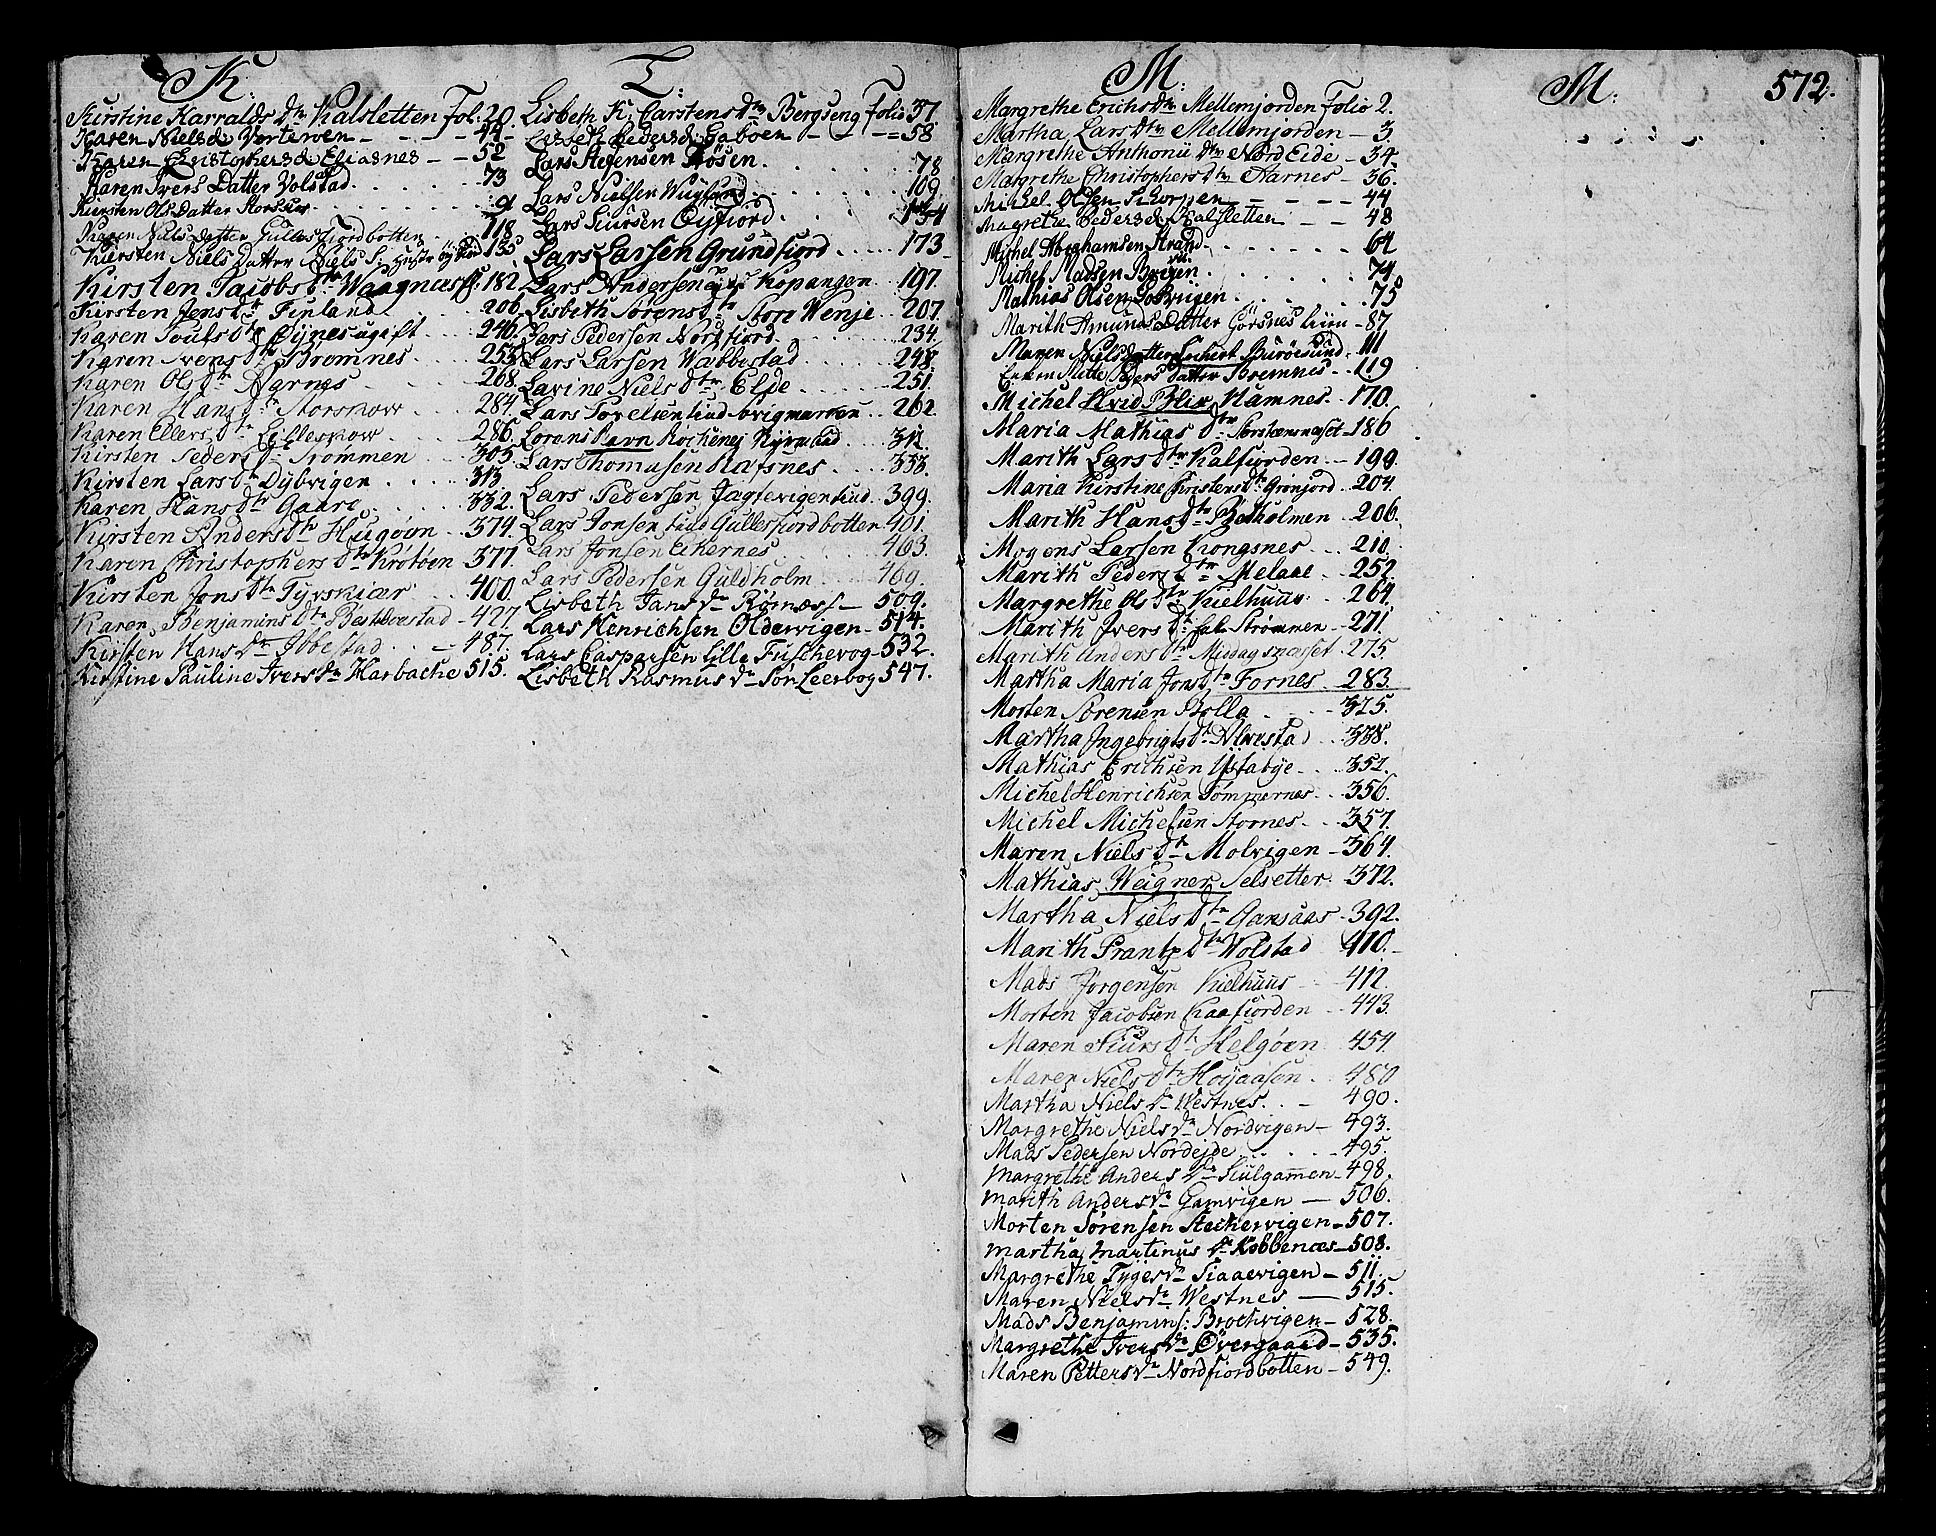 K:
Kirstine Harralds Dtr Kalsletten Fol: 20.
Karen Nielsd Vorteroen - - - 44.
Karen Christophersd Eliasnes - - 52
Karen Ivers Datter Volstad . . . 73
Kiersten Ols Datter Storsurs . . . 91
Karen Niels datter Gullesfiordbotten . 118
Kiersten Niels Datter Niels S: Hustr 135
Kirsten Jacobs dtr Waagnæss: 182
Kirsten Jens dr Finland . . . 206
Karen Poulsdtr Øynes ugift . . 246.
Karen Svensdtr Bromnes . . . 253
Karen Olsdtr Aarnes . . . 268.
Karen Hansdtr Storskow . . . 284.
Karen Ellersdtr Lilleskow . . . 286.
Kirsten Pedersdtr Strømmen . . 305.
Kirsten Larsdtr Dybvigen . . . 313
Karen Hansdtr Gaare . . . 332.
Kirsten Andersdtr Hugøen . . 374.
Karen Christophersdtr Krøtøen 377.
Kirsten Jonsdtr Tyvskiær . . 400.
Karen Benjaminsdtr Besteboestad - 427.
Kirsten Hansdtr Ibbestad . . - 487.
Kirstine Pauline Iversdr Harbache 515.
L:
Lisbeth K. Carstensdtr Bergseng Folio 37.
Lisbeth Pedersd Gaboen - - = 58
Lars Stefensen Røsen . . . 78
Lars Nielsen Wuglund . . . 109.
Lars Siursen Øysfiord . . . 134
Lars Larsen Grundfiord . . . 173
Lars Andersen Kopangen . . 197.
Lisbeth Sørensdtr Store Wenje . . 207.
Lars Pedersen Nordfiord . . . 234.
Lars Larsen Wabbestad . . . 248.
Lavine Nielsdtr Elde . . . 251.
Lars Povelsen Lind 262.
Lorens Ravn Kochenes Kiprestad . . 311.
Lars Thomasen Rafsnes . . . 333.
Lars Pedersen Jagtevigen Lind . . 399.
Lars Jonsen Lind Gullesfiordbotten 401.
Lars Jonsen Eikernes . . . 463.
Lars Pedersen Guldholm . . . 469.
Lisbeth Jansdr Rømæss - 509.
Lars Henrichsen Oldervigen - 514.
Lars Caspersen Lille Fuschevog - 532.
Lisbeth Rasmusdr Sør Leerbog 547.
M:
Margrethe Erichsdtr Mellemjorden Folio 2.
Martha Larsdtr Mellemjorden - 3
Margrethe Anthonii dtr Nord Eide - 34.
Margrethe Christophersdtr Aarnes - 36.
Mickel Olsen Skorpen - - - 44
Magrethe Pedersd Kalsletten - - 48
Michel Abrahamsen Strand . . . 64
Michel Madsen Brigen . . . 74
Mathias Olsen . . . 75
Marith Amunds Datter Görsnes - 87
Maren Nielsdatter Burøesund . 111
Enken Mette Peders Datter Bremnes . 119
Michel Hvid Blix Hamnes . 170.
Maria Mathiasdtr Torsteensnæset - 186
Marith Larsdtr Kalfiorden - 199.
Maria Kirstine Christensdr Grønjord . 204.
Marith Hansdtr Bøtholmen . 206.
Mogens Larsen Kongsnes . . 210.
Marith Pedersdtr Melaae . . 252.
Margrethe Olsdtr Kielhuus . . 264.
Marith Iversdtr fal Strømmen - 271.
Marith Andersdtr Middagsnæsset . 275.
Martha Maria Jonsdtr Fornes . 283.
Morten Sørensen Bolla . . . 325.
Martha Ingebrigtsdtr Alvestad . . 338.
Mathias Erichsen Ystabye . . 352.
Michel Henrichsen Tømmernes . . 356.
Michel Michelsen Stornes . . 357.
Maren Nielsdtr Molvigen - 364.
Mathias Weigner Selsetter . 372.
Martha Nielsdtr Gansaas . 392.
Marith Frantzdtr Wolstad 410.
Mads Jørgensen Kielhuus . . 412.
Morten Jacobsen Kaafiorden . . 443.
Maren Siursdtr Helgøen . . 454.
Maren Nielsdtr Hoÿaasen . . 480
Martha Nielsdr Westnes . . - 490.
Margrethe Nielsdr Nordvigen - 493.
Mads Pedersen Nordejde . . . 495.
Margrethe Andersdtr Siulgamen - 498.
Marith Andersdr Gamvigen - 506.
Morten Sørensen Steikervigen - 507.
Martha Martinusdr Kobbenæs - 508.
Margrethe Tygesdr Siaaevigen - 511.
Maren Nielsdr Westnes - 515.
Mads Benjamins: Brochvigen - 528.
Margrethe Iversdr Øvergaard - 535.
Maren Pettersdr Nordfiordbotten - 549.
M:
572.